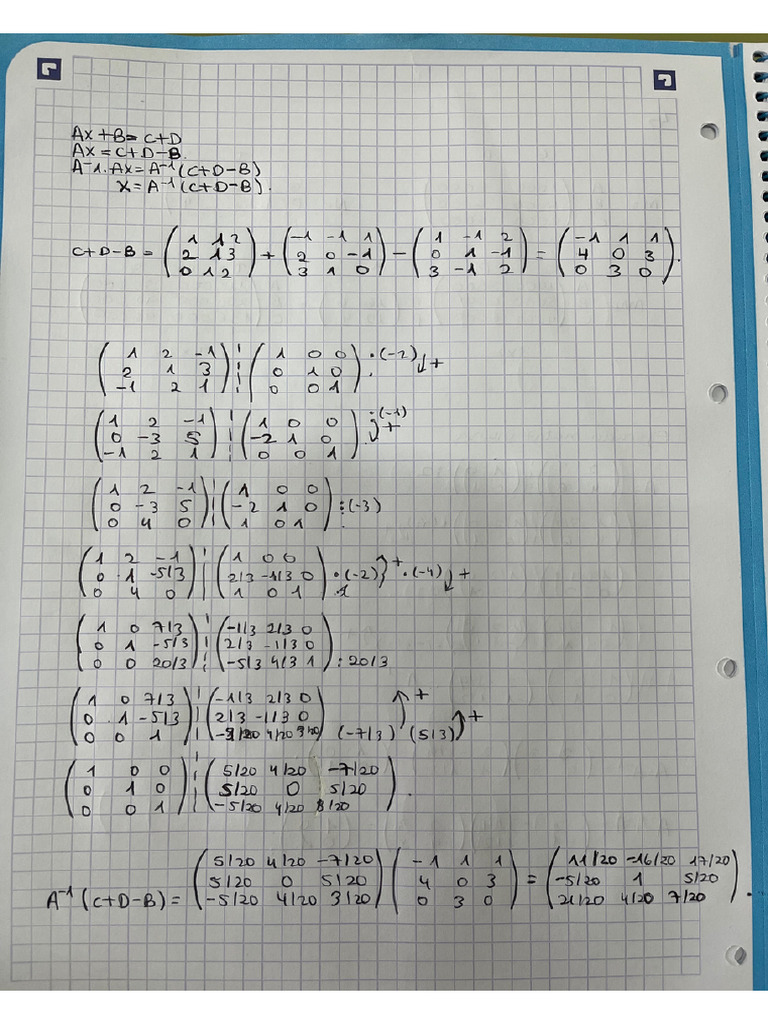 AX+B=C+D
AX=C+D-B.
A⁻¹.AX=A⁻¹(C+D-B)
X=A⁻¹(C+D-B).
C+D-B = (1 1 2; 2 1 3; 0 1 2) + (-1 -1 1; 2 0 -1; 3 1 0) - (1 -1 2; 0 1 -1; 3 -1 2) = (-1 1 1; 4 0 3; 0 3 0).
(1 2 -1; 2 1 3; -1 2 1) ¦ (1 0 0; 0 1 0; 0 0 1) ·(-2) ↓+
(1 2 -1; 0 -3 5; -1 2 1) ¦ (1 0 0; -2 1 0; 0 0 1) :(-1) ↓+
(1 2 -1; 0 -3 5; 0 4 0) ¦ (1 0 0; -2 1 0; 1 0 1) :(-3)
(1 2 -1; 0 1 -5/3; 0 4 0) ¦ (1 0 0; 2/3 -1/3 0; 1 0 1) ·(-2) ↑+ ·(-4) ↓+ ·1
(1 0 7/3; 0 1 -5/3; 0 0 20/3) ¦ (-1/3 2/3 0; 2/3 -1/3 0; -5/3 4/3 1) :20/3
(1 0 7/3; 0 1 -5/3; 0 0 1) ¦ (-1/3 2/3 0; 2/3 -1/3 0; -5/20 4/20 3/20) (-7/3) ↑+ (5/3) ↑+
(1 0 0; 0 1 0; 0 0 1) ¦ (5/20 4/20 -7/20; 5/20 0 5/20; -5/20 4/20 3/20).
A⁻¹(C+D-B) = (5/20 4/20 -7/20; 5/20 0 5/20; -5/20 4/20 3/20) (-1 1 1; 4 0 3; 0 3 0) = (11/20 -16/20 17/20; -5/20 1 5/20; 21/20 4/20 7/20).